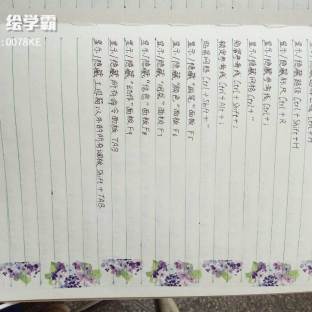 绘学霸
:0078KE
显示/隐藏路径 Ctrl+Shift+H
显示/隐藏标尺 Ctrl+R
显示/隐藏参考线 Ctrl+;
显示/隐藏网格 Ctrl+"
贴紧参考线 Ctrl+Shift+;
锁定参考线 Ctrl+Alt+;
贴紧网格 Ctrl+Shift+"
显示/隐藏"画笔"面板 F5
显示/隐藏"颜色"面板 F6
显示/隐藏"图层"面板 F7
显示/隐藏"信息"面板 F8
显示/隐藏"动作"面板 F9
显示/隐藏所有命令面板 TAB
显示/隐藏工具箱以外的所有调板 Shift+TAB